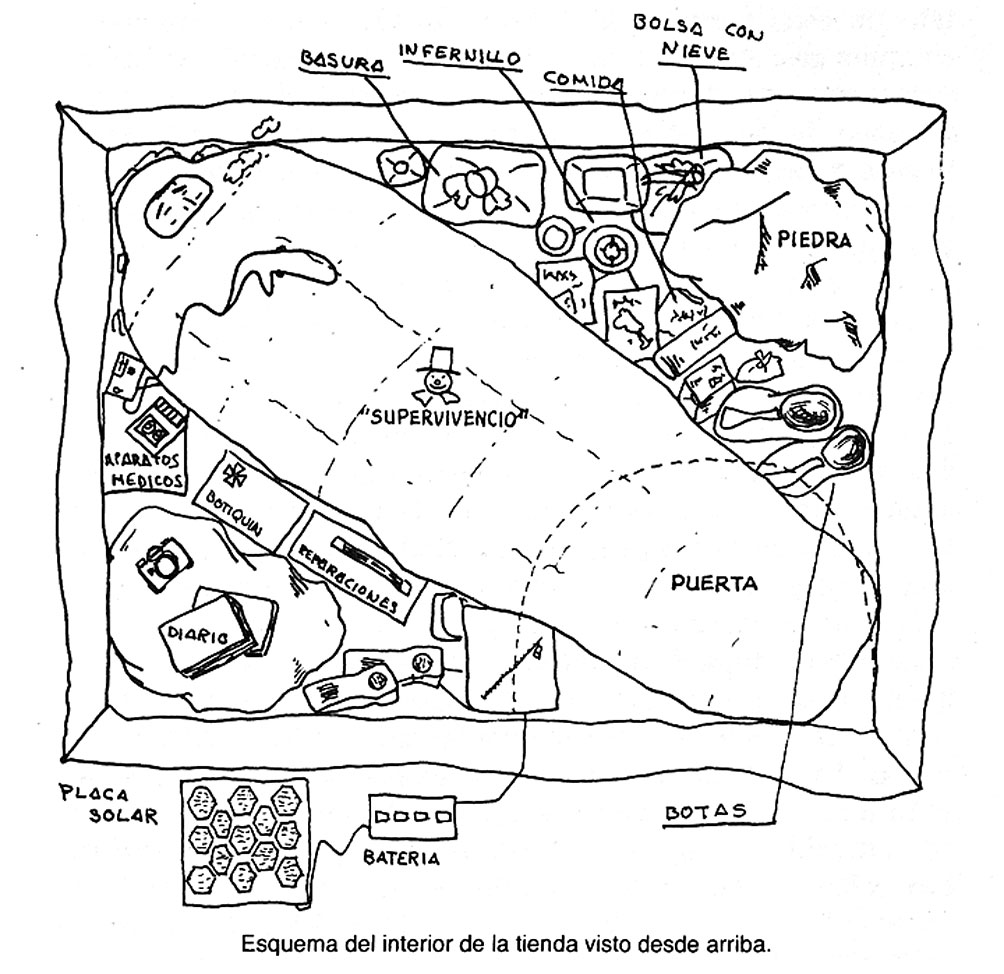 BOLSA CON
NIEVE
BASURA
INFERNILLO
COMIDA
PIEDRA
"SUPERVIVENCIO"
APARATOS
MEDICOS
BOTIQUIN
REPARACIONES
PUERTA
DIARIO
PLACA
SOLAR
BATERIA
BOTAS
Esquema del interior de la tienda visto desde arriba.